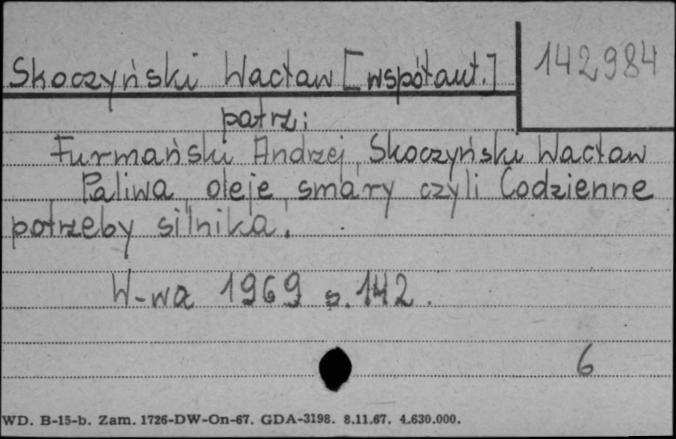 Skoczyński Wacław [współaut.] 142984
patrz:
Furmański Andrzej, Skoczyński Wacław
Paliwa, oleje, smary czyli Codzienne
potrzeby silnika.
W-wa 1969 s. 142.
6
WD. B-15-b. Zam. 1726-DW-On-67. GDA-3198. 8.11.67. 4.630.000.